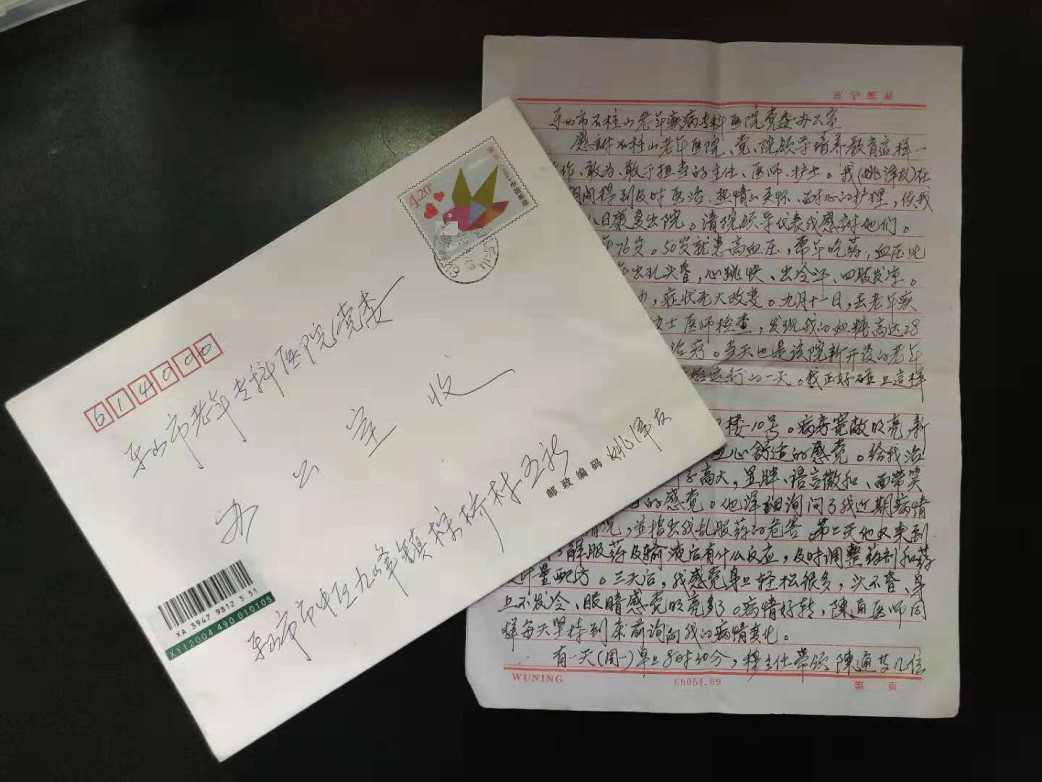 4.20
614000
乐山市老年专科医院党委
办公室 收
乐山市市中区九峰镇棕桥村五组
邮政编码 姚泽友
XA 3947 9812 5 51
XY12004 490 010105
五宁纸品
乐山市石柱山老年疾病专科医院党委办公室
感谢石柱山老年医院、党、院领导培养教育这样一
作、敢为、敢于担当的主任、医师、护士。我(姚泽友)在
期间得到及时医治、热情的关怀、耐心的护理,使我
八日康复出院。请院领导代表我感谢他们。
年76岁。50岁就患高血压,常年吃药,血压吃
头昏,心跳快、出冷汗、四肢发凉。
症状无大改变。九月十一日,去老年疾
医师检查,发现我的血糖高达28
治疗。当天也是该院新开设的老年
运行的一天。我正好碰上这样
楼-10号。病房宽敞明亮新
心舒适的感觉。给我治
子高大,显胖、语言微和、面带笑
的感觉。他详细询问了我近期病情
情况,并指出我乱服药的危害。第二天他又来到
解服药及输液后有什么反应,及时调整药剂和药
计量配方。三天后,我感觉身上轻松很多,头不昏、身
上不发冷、眼睛感觉明亮多了。病情好转,陳通医师同
样每天坚持到床前询问我的病情变化。
有一天(周一)早上8时30分,穆主任带领陳通等几位
WUNING
G8054.89
第 页